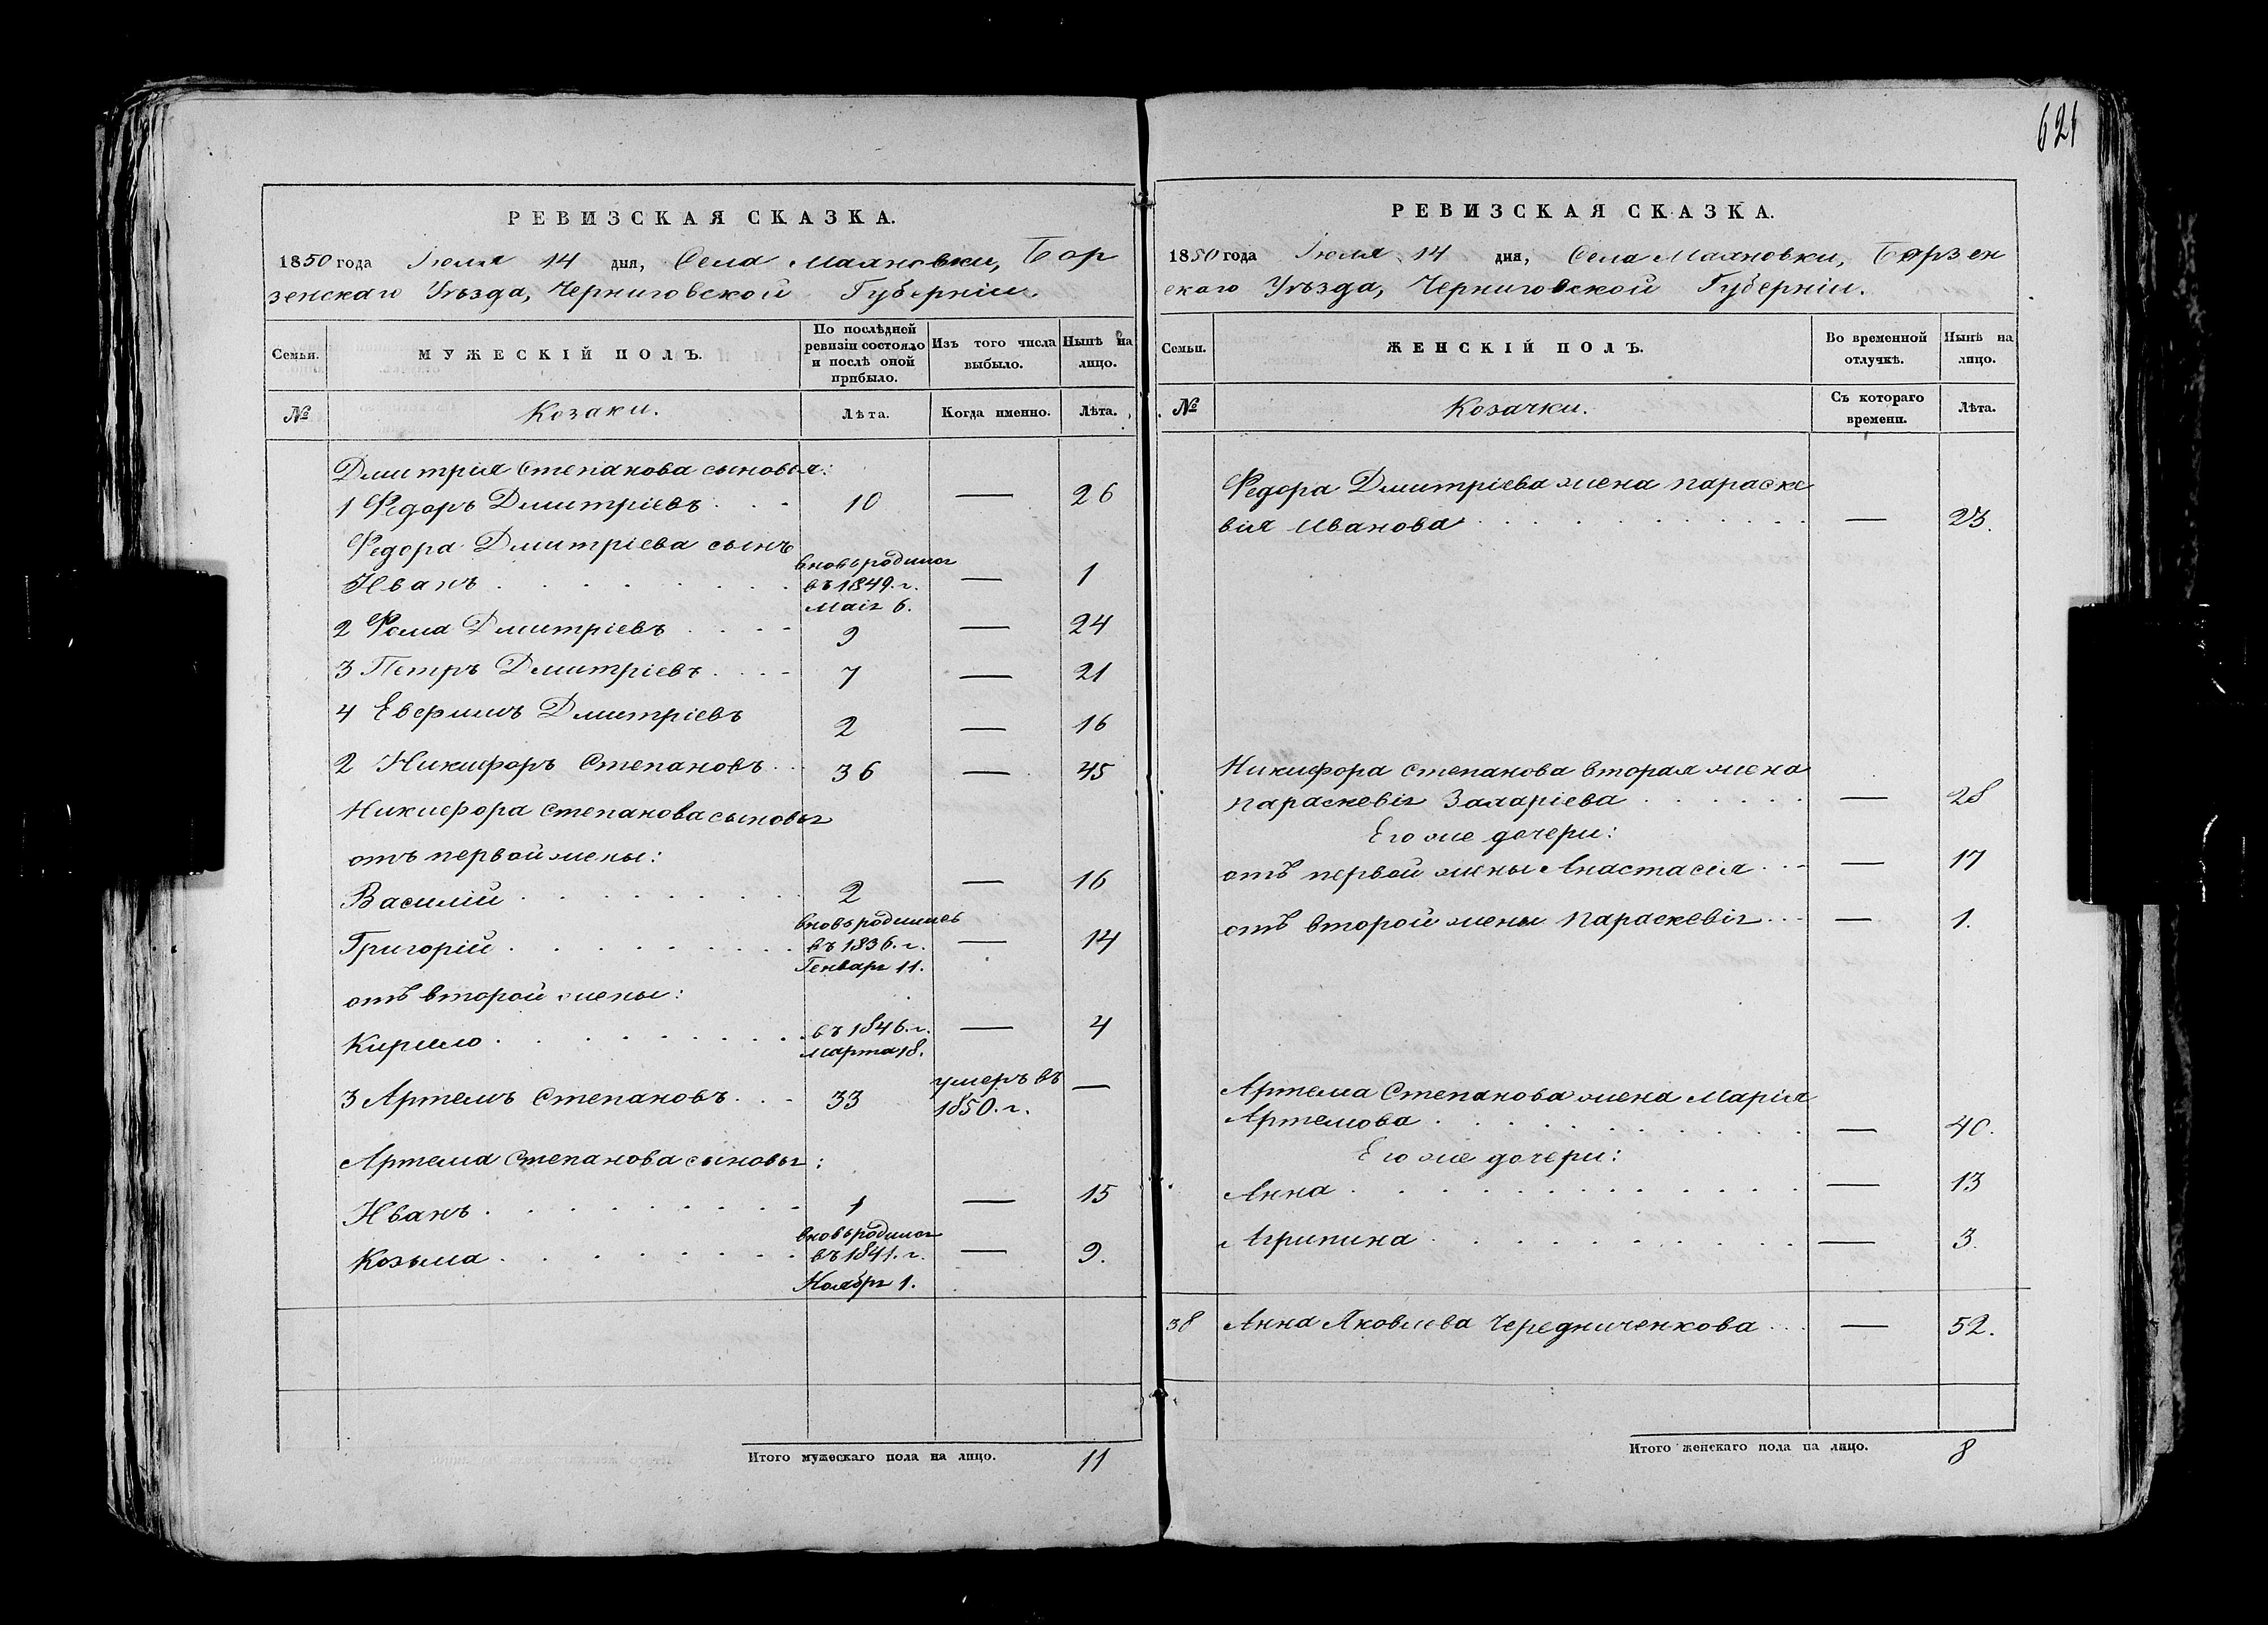 621
РЕВИЗСКАЯ СКАЗКА.
1850 года Іюля 14 дня, Села Маяновки, Бор
зенскаго Уѣзда, Черниговской Губерніи.
Семьи.
МУЖЕСКІЙ ПОЛЪ.
По послѣдней ревизіи состояло и послѣ оной прибыло.
Изъ того числа выбыло.
Нынѣ на лицо.
№
Козаки.
Лѣта.
Когда именно.
Лѣта.
Дмитрія Степанова сыновья:
1 Федоръ Дмитріевъ 10 — 26
Федора Дмитріева сынъ
Иванъ вновь родился въ 1849. г. Маія 6. — 1
2 Фома Дмитріевъ 9 — 24
3 Петръ Дмитріевъ 7 — 21
4 Евфимъ Дмитріевъ 2 — 16
2 Никифоръ Степановъ 36 — 45
Никифора Степанова сыновья
отъ первой жены:
Василій 2 — 16
Григорій вновь родились въ 1836. г. Генваря 11. — 14
отъ второй жены:
Кирило въ 1846. г. Марта 18. — 4
3 Артемъ Степановъ 33 умеръ въ 1850. г. —
Артема Степанова сыновья:
Иванъ 1 — 15
Козьма вновь родился въ 1841. г. Ноября 1. — 9.
Итого мужескаго пола на лицо. 11
РЕВИЗСКАЯ СКАЗКА.
1850 года Іюля 14 дня, Села Маяновки, Борзен
скаго Уѣзда, Черниговской Губерніи.
Семьи.
ЖЕНСКІЙ ПОЛЪ.
Во временной отлучкѣ.
Нынѣ на лицо.
№
Козачки.
Съ котораго времени.
Лѣта.
Федора Дмитріева жена Параске
вія Иванова — 23.
Никифора Степанова вторая жена
Параскевія Захаріева — 28
Его же дочери:
отъ первой жены Анастасія — 17
отъ второй жены Параскевія — 1.
Артема Степанова жена Марія
Артемова — 40.
Его же дочери:
Анна — 13
Агрипина — 3.
38 Анна Яковлева Чередниченкова — 52.
Итого женскаго пола на лицо. 8